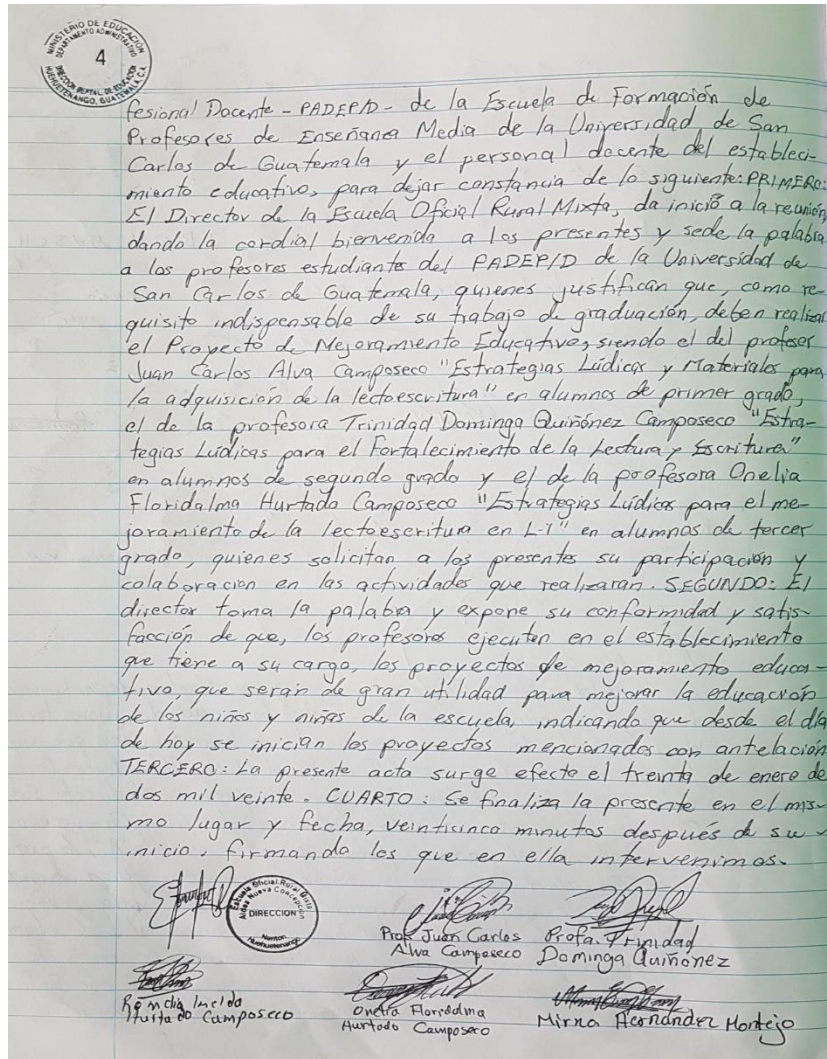 MINISTERIO DE EDUCACIÓN
DEPARTAMENTO ADMINISTRATIVO
4
DIRECCIÓN DEPTAL. DE EDUCACIÓN
HUEHUETENANGO, GUATEMALA, C.A.
fesional Docente - PADEP/D - de la Escuela de Formación de
Profesores de Enseñanza Media de la Universidad de San
Carlos de Guatemala y el personal docente del estableci-
miento educativo, para dejar constancia de lo siguiente: PRIMERO:
El Director de la Escuela Oficial Rural Mixta, da inició a la reunión,
dando la cordial bienvenida a los presentes y sede la palabra
a los profesores estudiantes del PADEP/D de la Universidad de
San Carlos de Guatemala, quienes justifican que, como re-
quisito indispensable de su trabajo de graduación, deben realizar
el Proyecto de Mejoramiento Educativo, siendo el del profesor
Juan Carlos Alva Camposeco "Estrategias Lúdicas y Materiales para
la adquisición de la lectoescritura" en alumnos de primer grado,
el de la profesora Trinidad Dominga Quiñónez Camposeco "Estra-
tegias Lúdicas para el Fortalecimiento de la Lectura y Escritura"
en alumnos de segundo grado y el de la profesora Onelia
Floridalma Hurtado Camposeco "Estrategias Lúdicas para el me-
joramiento de la lectoescritura en L-1" en alumnos de tercer
grado, quienes solicitan a los presentes su participación y
colaboración en las actividades que realizarán. SEGUNDO: El
director toma la palabra y expone su conformidad y satis-
facción de que, los profesores ejecuten en el establecimiento
que tiene a su cargo, los proyectos de mejoramiento educa-
tivo, que serán de gran utilidad para mejorar la educación
de los niños y niñas de la escuela, indicando que desde el día
de hoy se inician los proyectos mencionados con antelación
TERCERO: La presente acta surge efecto el treinta de enero de
dos mil veinte. CUARTO: Se finaliza la presente en el mis-
mo lugar y fecha, veinticinco minutos después de su
inicio, firmando los que en ella intervenimos.
Escuela Oficial Rural Mixta
Aldea Nueva Concepción
DIRECCION
Nentón
Huehuetenango
Prof. Juan Carlos
Alva Camposeco
Profa. Trinidad
Dominga Quiñónez
Hurtado Camposeco
Onelia Floridalma
Hurtado Camposeco
Mirna Hernández Montejo